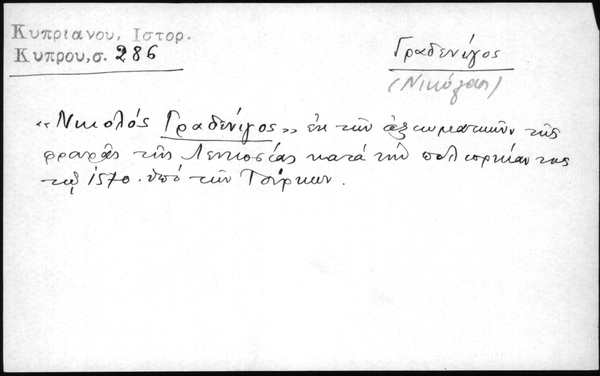 Κυπριανου, Ιστορ.
Κυπρου, σ. 286
Γραδενίγος
(Νικόλαος)
«Νικολός Γραδενίγος» ἐκ τῶν ἀξιωματικῶν τῆς
φρουρᾶς τῆς Λευκωσίας κατά τήν πολιορκίαν της
τῷ 1570 ὑπό τῶν Τούρκων.